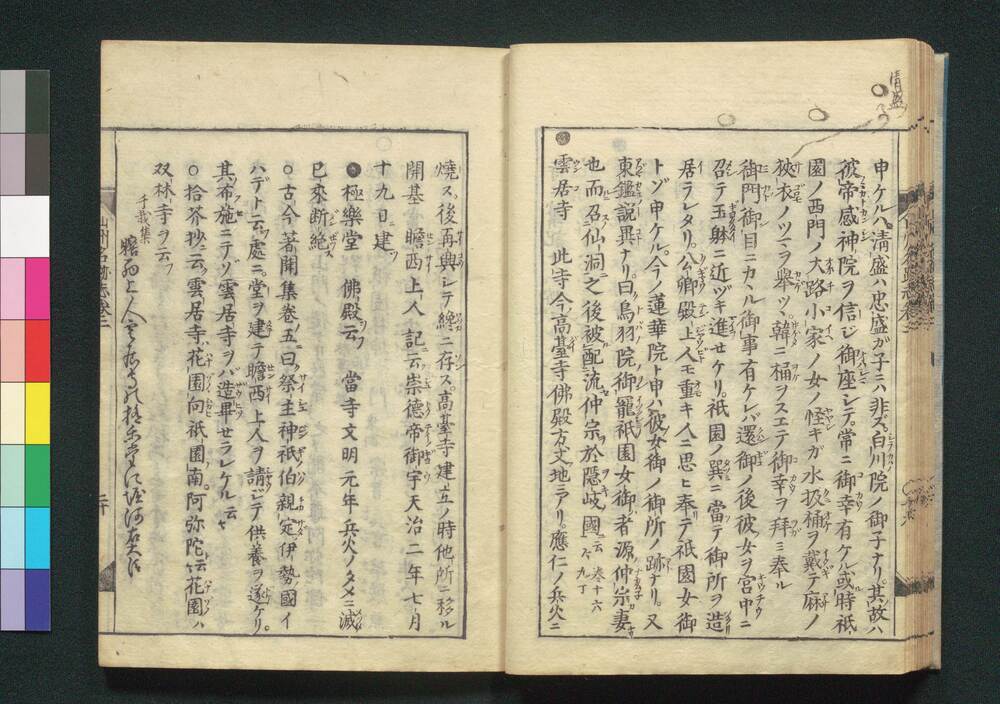 清盛
申ケルハ清盛ハ忠盛ガ子ニハ非ス白川院ノ御子ナリ其故ハ
彼帝感神院ヲ信ジ御座シテ常ニ御幸有ケル或時祇
園ノ西門ノ大路小家ノ女ノ怪キガ水扱桶ヲ戴テ麻ノ
衣ノツマヲ挙ツ桶ヲスエテ御幸ヲ拜ミ奉ル
御門御目ニカヽル御事有ケレバ還御ノ後彼女ヲ宮中ニ
召テ玉躰ニ近ヅキ進セケリ祇園ノ巽ニ當テ御所ヲ造
居ラレタリ公卿殿上人モ重キ人ニ思ヒ奉テ祇園女御
トゾ申ケル今ノ蓮華院ト申ハ彼女御ノ御所ノ跡ナリ又
東鑑説異ナリ曰鳥羽院御寵祇園女御者源仲宗妻
也而召仙洞之後被配流仲宗於隠岐國云 巻十六 九丁
雲居寺 此寺今高臺寺佛殿方丈地ニアリ應仁ノ兵火ニ
焼ス後再興シテ纔ニ存ス高臺寺建立ノ時他所ニ移ル
開基瞻西上人 記云崇德帝御宇天治二年七月
十九日建
●極樂堂 佛殿云 當寺文明元年兵火ノタメニ滅
已來断絶
○古今著聞集卷五曰祭主神祇伯親定伊勢國イ
ハデト云處ニ堂ヲ建テ瞻西上人ヲ請ジテ供養ヲ遂ケリ
其布施ニテゾ雲居寺ヲバ造畢セラレケル云々
○拾芥抄ニ云雲居寺花園向祇園南阿弥陀云花園ハ
双林寺ヲ云
千載集
瞻西上人
山州名跡志巻二
二十